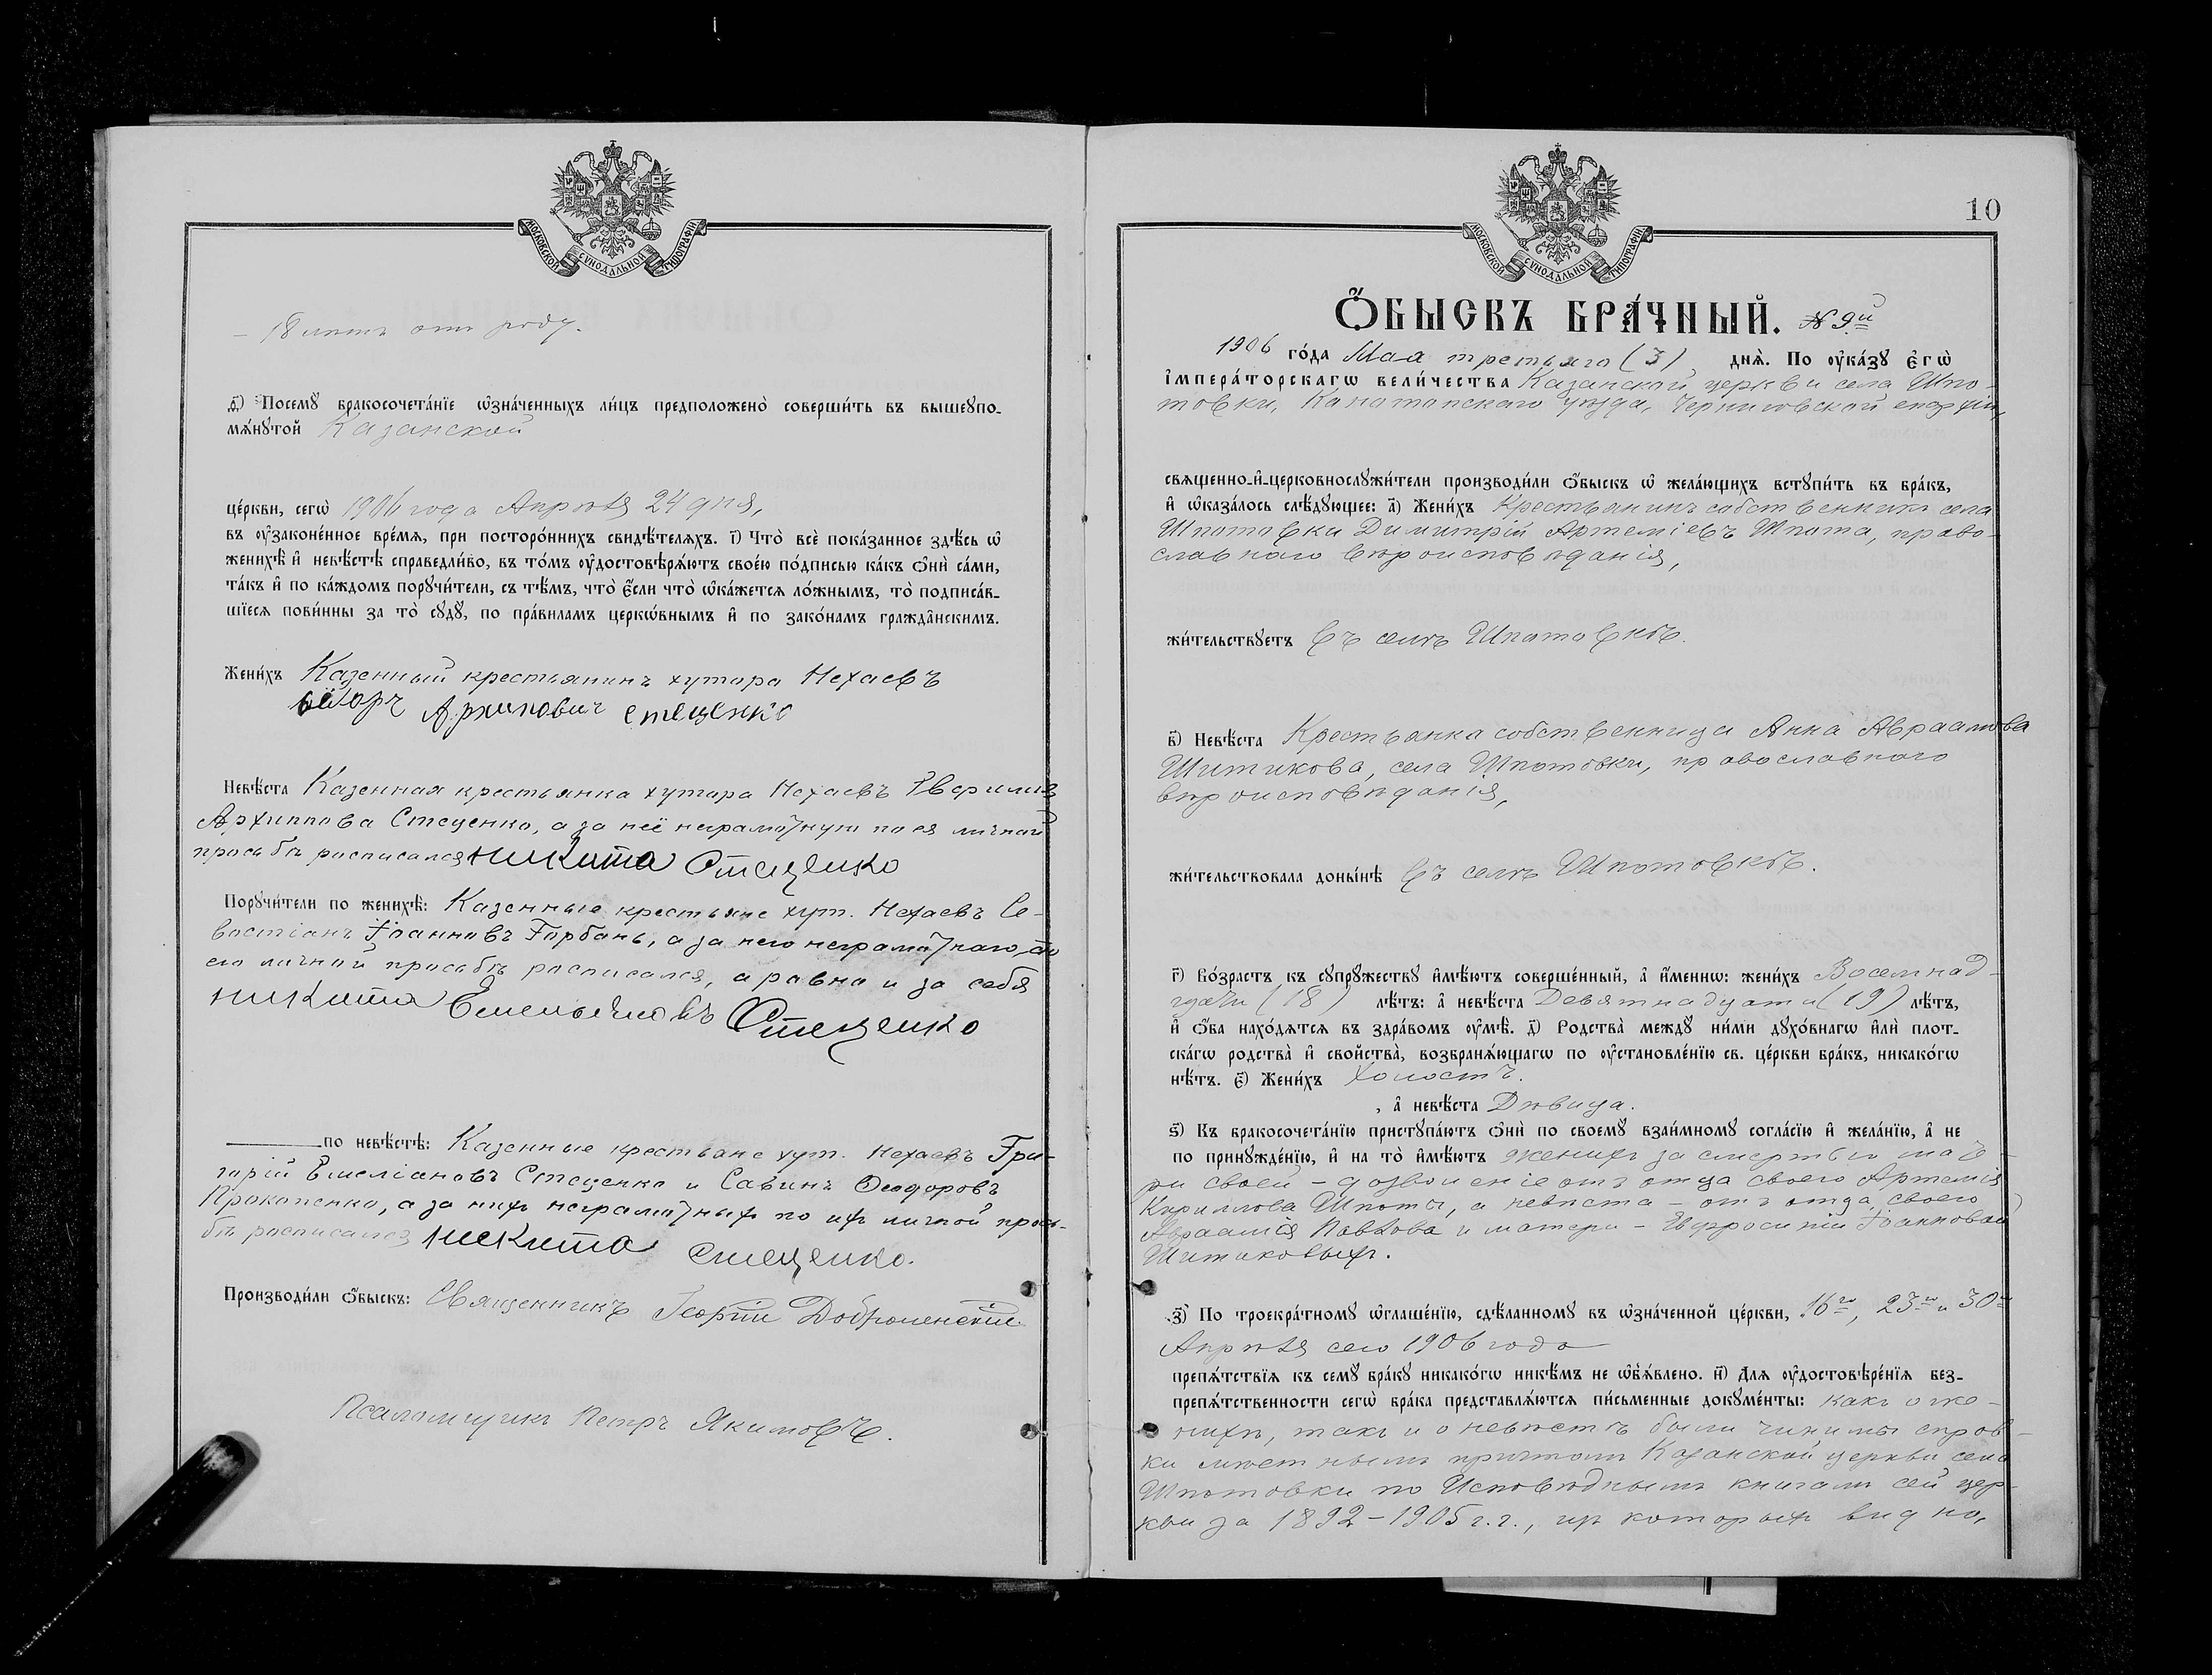 МОСКОВСКОЙ СѴНОДАЛЬНОЙ ТИПОГРАФІИ
– 18 летъ отъ роду.
д҃) Посемꙋ бракосочета́нїе ѡ҆зна́ченныхъ ли́цъ предположено̀ соверши́ть въ вышеꙋпо-
мѧ́нꙋтой Казанской
це́ркви, сегѡ̀ 1906 года Апрѣля 24 дня,
въ ᲂу҆зако́ненное вре́мѧ, при посторо́ннихъ свидѣ́телѧхъ. і҃) Что̀ всѐ пока́занное здѣ́сь ѡ҆
женихѣ̀ и҆ невѣ́стѣ справедли́во, въ то́мъ ᲂу҆достовѣрѧ́ютъ свое́ю по́дписью ка́къ ѻ҆нѝ са́ми,
та́къ и҆ по ка́ждомъ порꙋчи́тели, съ тѣ́мъ, что̀ є҆́сли что̀ ѡ҆ка́жетсѧ ло́жнымъ, то̀ подписа́в-
шїесѧ пови́нны за то̀ сꙋдꙋ̀, по пра́виламъ церкѡ́внымъ и҆ по зако́намъ гражда̂нскимъ.
Жени́хъ Казенный крестьянинъ хутора Нехаевъ
Архипович стеценко
Невѣ́ста Казенная крестьянка хутора Нехаевъ
Архиппова Стеценко, а за неё неграмотную по ея личной
просьбѣ расписался никита Стеценко
Порꙋчи́тели по женихѣ̀: Казенные крестьяне хут. Нехаевъ Се-
вастіанъ Іоанновъ Горбань, а за него неграмотнаго, по
его личной просьбѣ расписался, а равно и за себя
никита Емельяновъ Стеценко
по невѣ́стѣ: Казенные крестьяне хут. Нехаевъ Гри-
горій Емеліановъ Стеценко и Савинъ Ѳеодоровъ
Прокопенко, а за нихъ неграмотныхъ по ихъ личной прось-
бѣ расписался никита стеценко.
Производи́ли ѻ҆́быскъ: Священникъ Георгій
Псаломщикъ Петръ Якимовъ.
МОСКОВСКОЙ СѴНОДАЛЬНОЙ ТИПОГРАФІИ
10
Ѻ҆́БЫСКЪ БРА́ЧНЫЙ. № 9й
1906 го́да Мая третьяго (3) днѧ̀. По ᲂу҆ка́зꙋ є҆гѡ̀
і҆мпера́торскагѡ вели́чества Казанской церкви села Шпо-
товки, Конотопскаго уѣзда, Черниговской епархіи,
свѧщенно-и҆-церковнослꙋжи́тели производи́ли ѻ҆́быскъ ѡ҆ жела́ющихъ встꙋпи́ть въ бра́къ,
и҆ ѡ҆каза́лось слѣ́дꙋющее: а҃) Жени́хъ Крестьянинъ собственникъ села
Шпотовки Димитрій Артеміевъ Шпота, право-
славнаго вѣроисповѣданія,
жи́тельствꙋетъ въ селѣ Шпотовкѣ.
в҃) Невѣ́ста Крестьянка собственница Анна Авраамова
Шитикова, села Шпотовки, православнаго
вѣроисповѣданія,
жи́тельствовала доны́нѣ въ селѣ Шпотовкѣ.
г҃) Во́зрастъ къ сꙋпрꙋ́жествꙋ и҆мѣ́ютъ соверше́нный, а҆ и҆́меннѡ: жени́хъ Восемнад-
цати (18) лѣ́тъ: а҆ невѣ́ста Девятнадцати (19) лѣ́тъ,
и҆ ѻ҆́ба нахо́дѧтсѧ въ здра́вомъ ᲂу҆мѣ̀. д҃) Родства̀ междꙋ̀ ни́ми дꙋхо́внагѡ и҆лѝ плот-
ска́гѡ родства̀ и҆ сво́йства̀, возбранѧ́ющагѡ по ᲂу҆становле́нїю св. це́ркви бра́къ, никако́гѡ
нѣ́тъ. є҃) Жени́хъ Холостъ.
, а҆ невѣ́ста Дѣвица.
ѕ҃) Къ бракосочета́нїю пристꙋпа́ютъ ѻ҆нѝ по своемꙋ̀ взаи́мномꙋ согла́сїю и҆ жела́нїю, а҆ не
по принꙋжде́нїю, и҆ на то̀ и҆мѣ́ютъ женихъ за смертью мате-
ри своей – дозволеніе отъ отца своего Артемія
Кириллова Шпоты, а невѣста – отъ отца своего
Авраамія Павлова и матери – Евфросиніи Іоанновой
Шитиковыхъ.
з҃) По троекра́тномꙋ ѡ҆глаше́нїю, сдѣ́ланномꙋ въ ѡ҆зна́ченной це́ркви, 16го, 23го и 30го
Апрѣля сего 1906 года
препѧ́тствїѧ къ семꙋ̀ бра́кꙋ никако́гѡ никѣ́мъ не ѡ҆б̾ѧ́влено. и҃) Длѧ ᲂу҆достовѣре́нїѧ без-
препѧ́тственности сегѡ̀ бра́ка представлѧ́ютсѧ пи́сьменные докꙋме́нты: какъ о же-
нихѣ, такъ и о невѣстѣ были чинимы справ-
ки мѣстнымъ причтомъ Казанской церкви села
Шпотовки по Исповѣднымъ книгамъ сей цер-
кви за 1892–1905 г.г., изъ которыхъ видно,